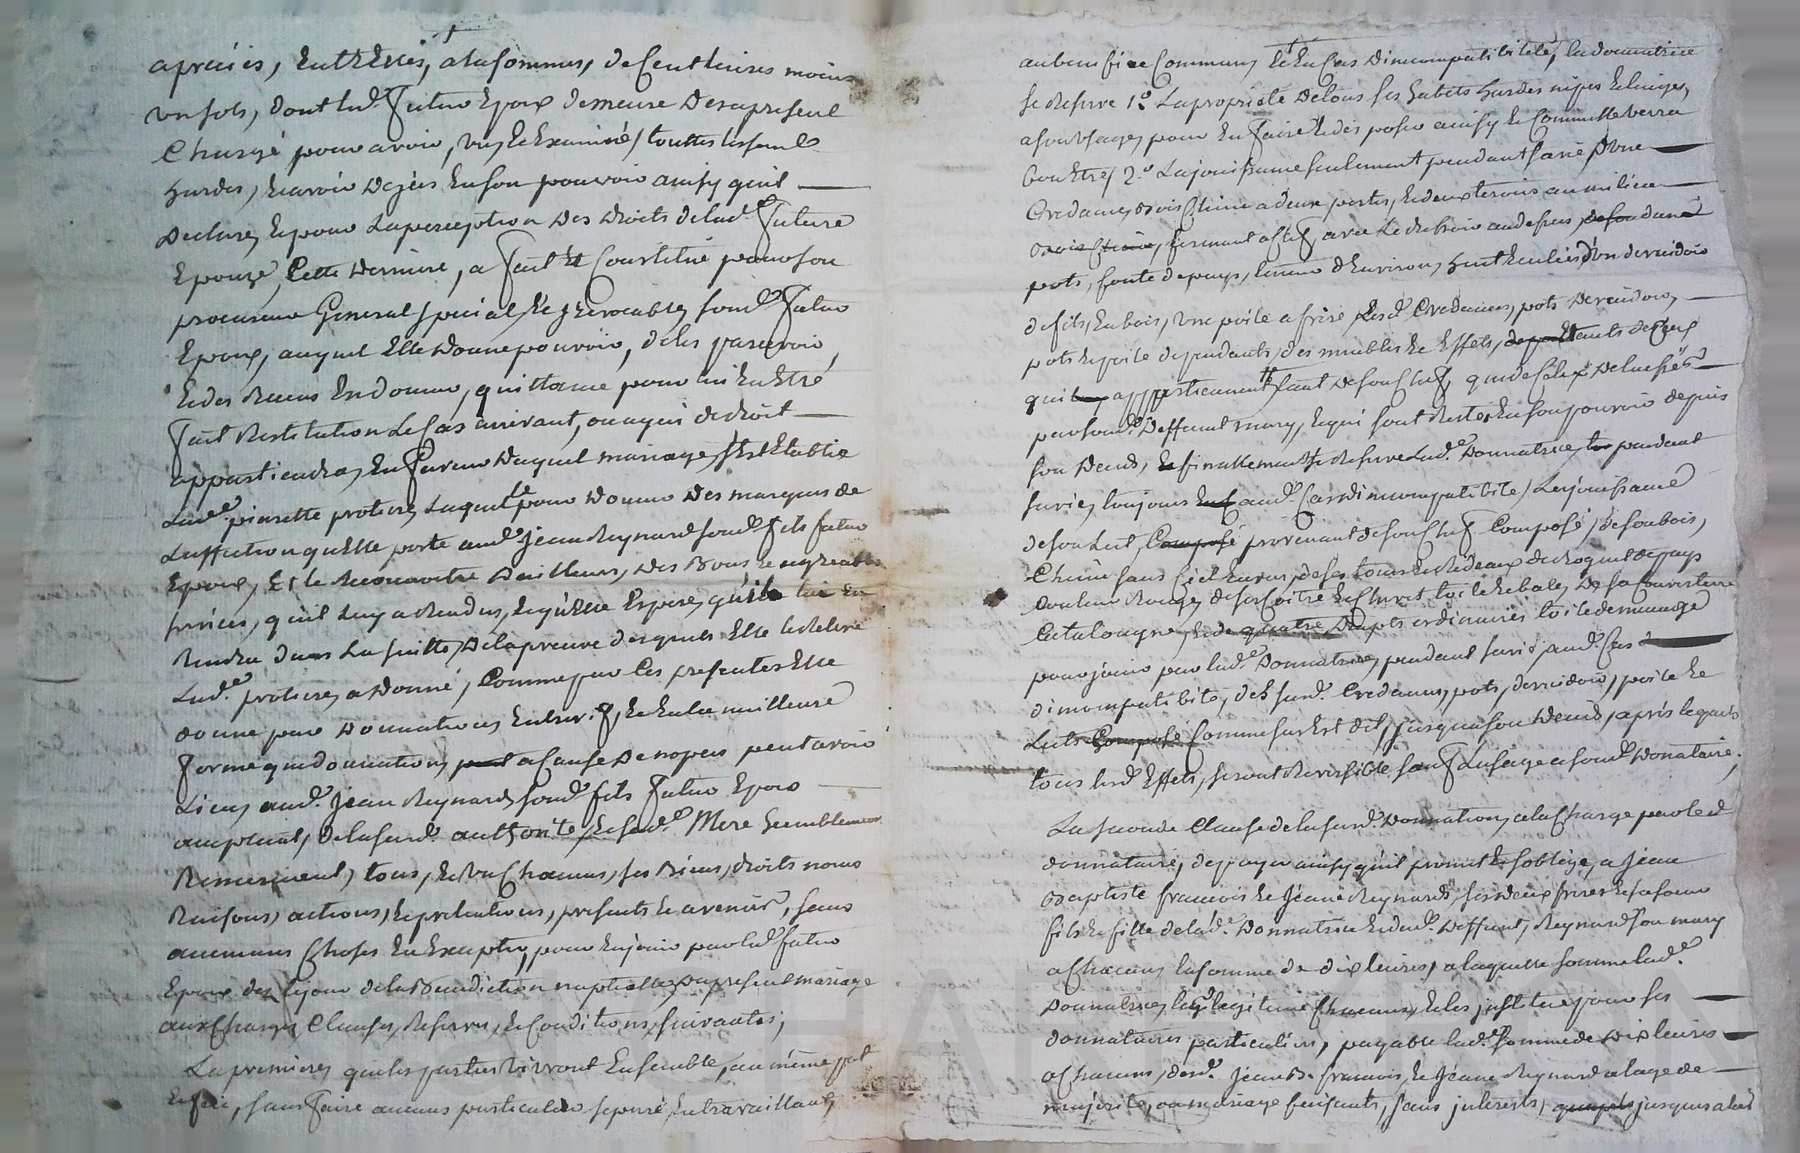 apreciés, Entr'Elles, a la somme, de Cent livres moins
un sols, dont lud. futur Epoux demeure Des a present
Chargé pour avoir, vus Et Examiné, touttes les
hardes, Et avoir Dejeas En son pouvoir ainsy quil
Declare, Et pour La perception des Droits de lad.e future
Epouze, Cette Derniere, a fait Et Constitué pour son
procureur General special, Et irrevocable, sond. futur
Epoux, auquel Elle Donne pouvoir, de les parcevoir,
Et des Receus En donner, quittance pour lui En Etre
fait Restitution Le Cas arrivant, ou a qui de droit
appartiendra, En faveur Duquel mariage, s'Est Etablie
Lad.e pierrette protiere, Laquelle pour Donner Des marques de
Laffection quElle porte aud. Jean Reynard sond. fils futur
Epoux, Et le Reconnoitre Dailleurs, Des Bons Et agreables
services, quil Luy a Rendus, Et quElle Espere, quil lui En
Rendra dans La suitte, De la preuve desquels Elle le Releve
Lad.e protiere, a Donné, Comme par Les presentes Elle
donne par Donnation Entre vif, Et En la meilleure
forme que donnation, a Cause De nopces peut avoir
Lieu, aud. Jean Reynard, sond. fils futur Epoux
acceptant, de la susd. authorité, Et sad.e Mere humblement
Remerciant, tous, Et un Chacuns, ses Biens, droits noms
Raisons, actions, Et pretentions, presents Et avenir, sans
aucunes Choses En Excepter, pour En jouir par led. futur
Epoux dez le jour de la Benediction nuptialle, du present mariage
aux Charges, Clauses, Reserves, Et Conditions, suivantes;
La premiere, que les parties vivront Ensemble, au même pot
Et feu, sans faire aucuns particulier separé, En travaillant,
au benefice Commun, Et En Cas Dimcompatibilité, la donnatrice
se Reserve 1.o La proprieté De tous ses habits hardes nipes Et linges,
a son usage, pour En faire Et disposer ainsy Et Comm'Elle verra
bon Etre, 2.o La jouissance seulement pendant sa vie D'une
Credance, Bois Chêne a deux portes, Et deux tiroirs au milieu
fermant a Clef, avec Le dressoir au dessus, d'un
pots, fonte de pays, tenant d'Environ, huit Ecuelles, d'un devidoir
de fils, En bois, une poile a frire, Lesd. Credances, pots Devidoir,
pots Et poile dependants, des meubles Et Effets,
qui appartiennent tant De son Chef, que de Celux Delaissés
par sond. Deffunt mary, Et qui sont Restés En son pouvoir depuis
son Deceds, Et finallement se Reserve Lad.e Donnatrice, pendant
sa vie, toujours aud. Cas dimcompatibilité, La jouissance
de son Lict, provenant de son Chef Composé, de son bois,
Chêne sans Ciel Encore, de ses tours Et Rideaux de Roquet de pays
Couleur Rouge, de sa Coitre Et Chevet toile Et bale, De sa Couverture
Catalougne, Et de Draps ordinaires toile de menage
pour jouir par lad.e Donnatrice, pendant sa vie, aud. Cas
dimcompatibité, des susd. Credances, pots, devidoir, poile Et
Lict Comme sus Est dit, jusqua son Deceds, après lequel
tous lesd. Effets, seront Reversible sauf Lusage a sond. Donataire,
La seconde Clause de la susd. Donnation, a la Charge par led.
donnataire, de payer ainsy qu'il promet Et soblige, a Jean
Baptiste francois Et Jeane Reynard, ses deux freres Et sa soeur
fils Et fille de lad.e Donnatrice Et dud. Deffunt, Reynard son mary
a Chacuns la somme de dix livres, a laquelle somme lad.e
Donnatrice, les legitime Chacuns, Et les, institue pour ses
donnataires particuliers, payable lad.e somme de Dix livres
a Chacuns, desd. Jean B. francois, Et Jeane Reynard a lage de
majorité, ou mariage faisants, sans interests, jusques alors